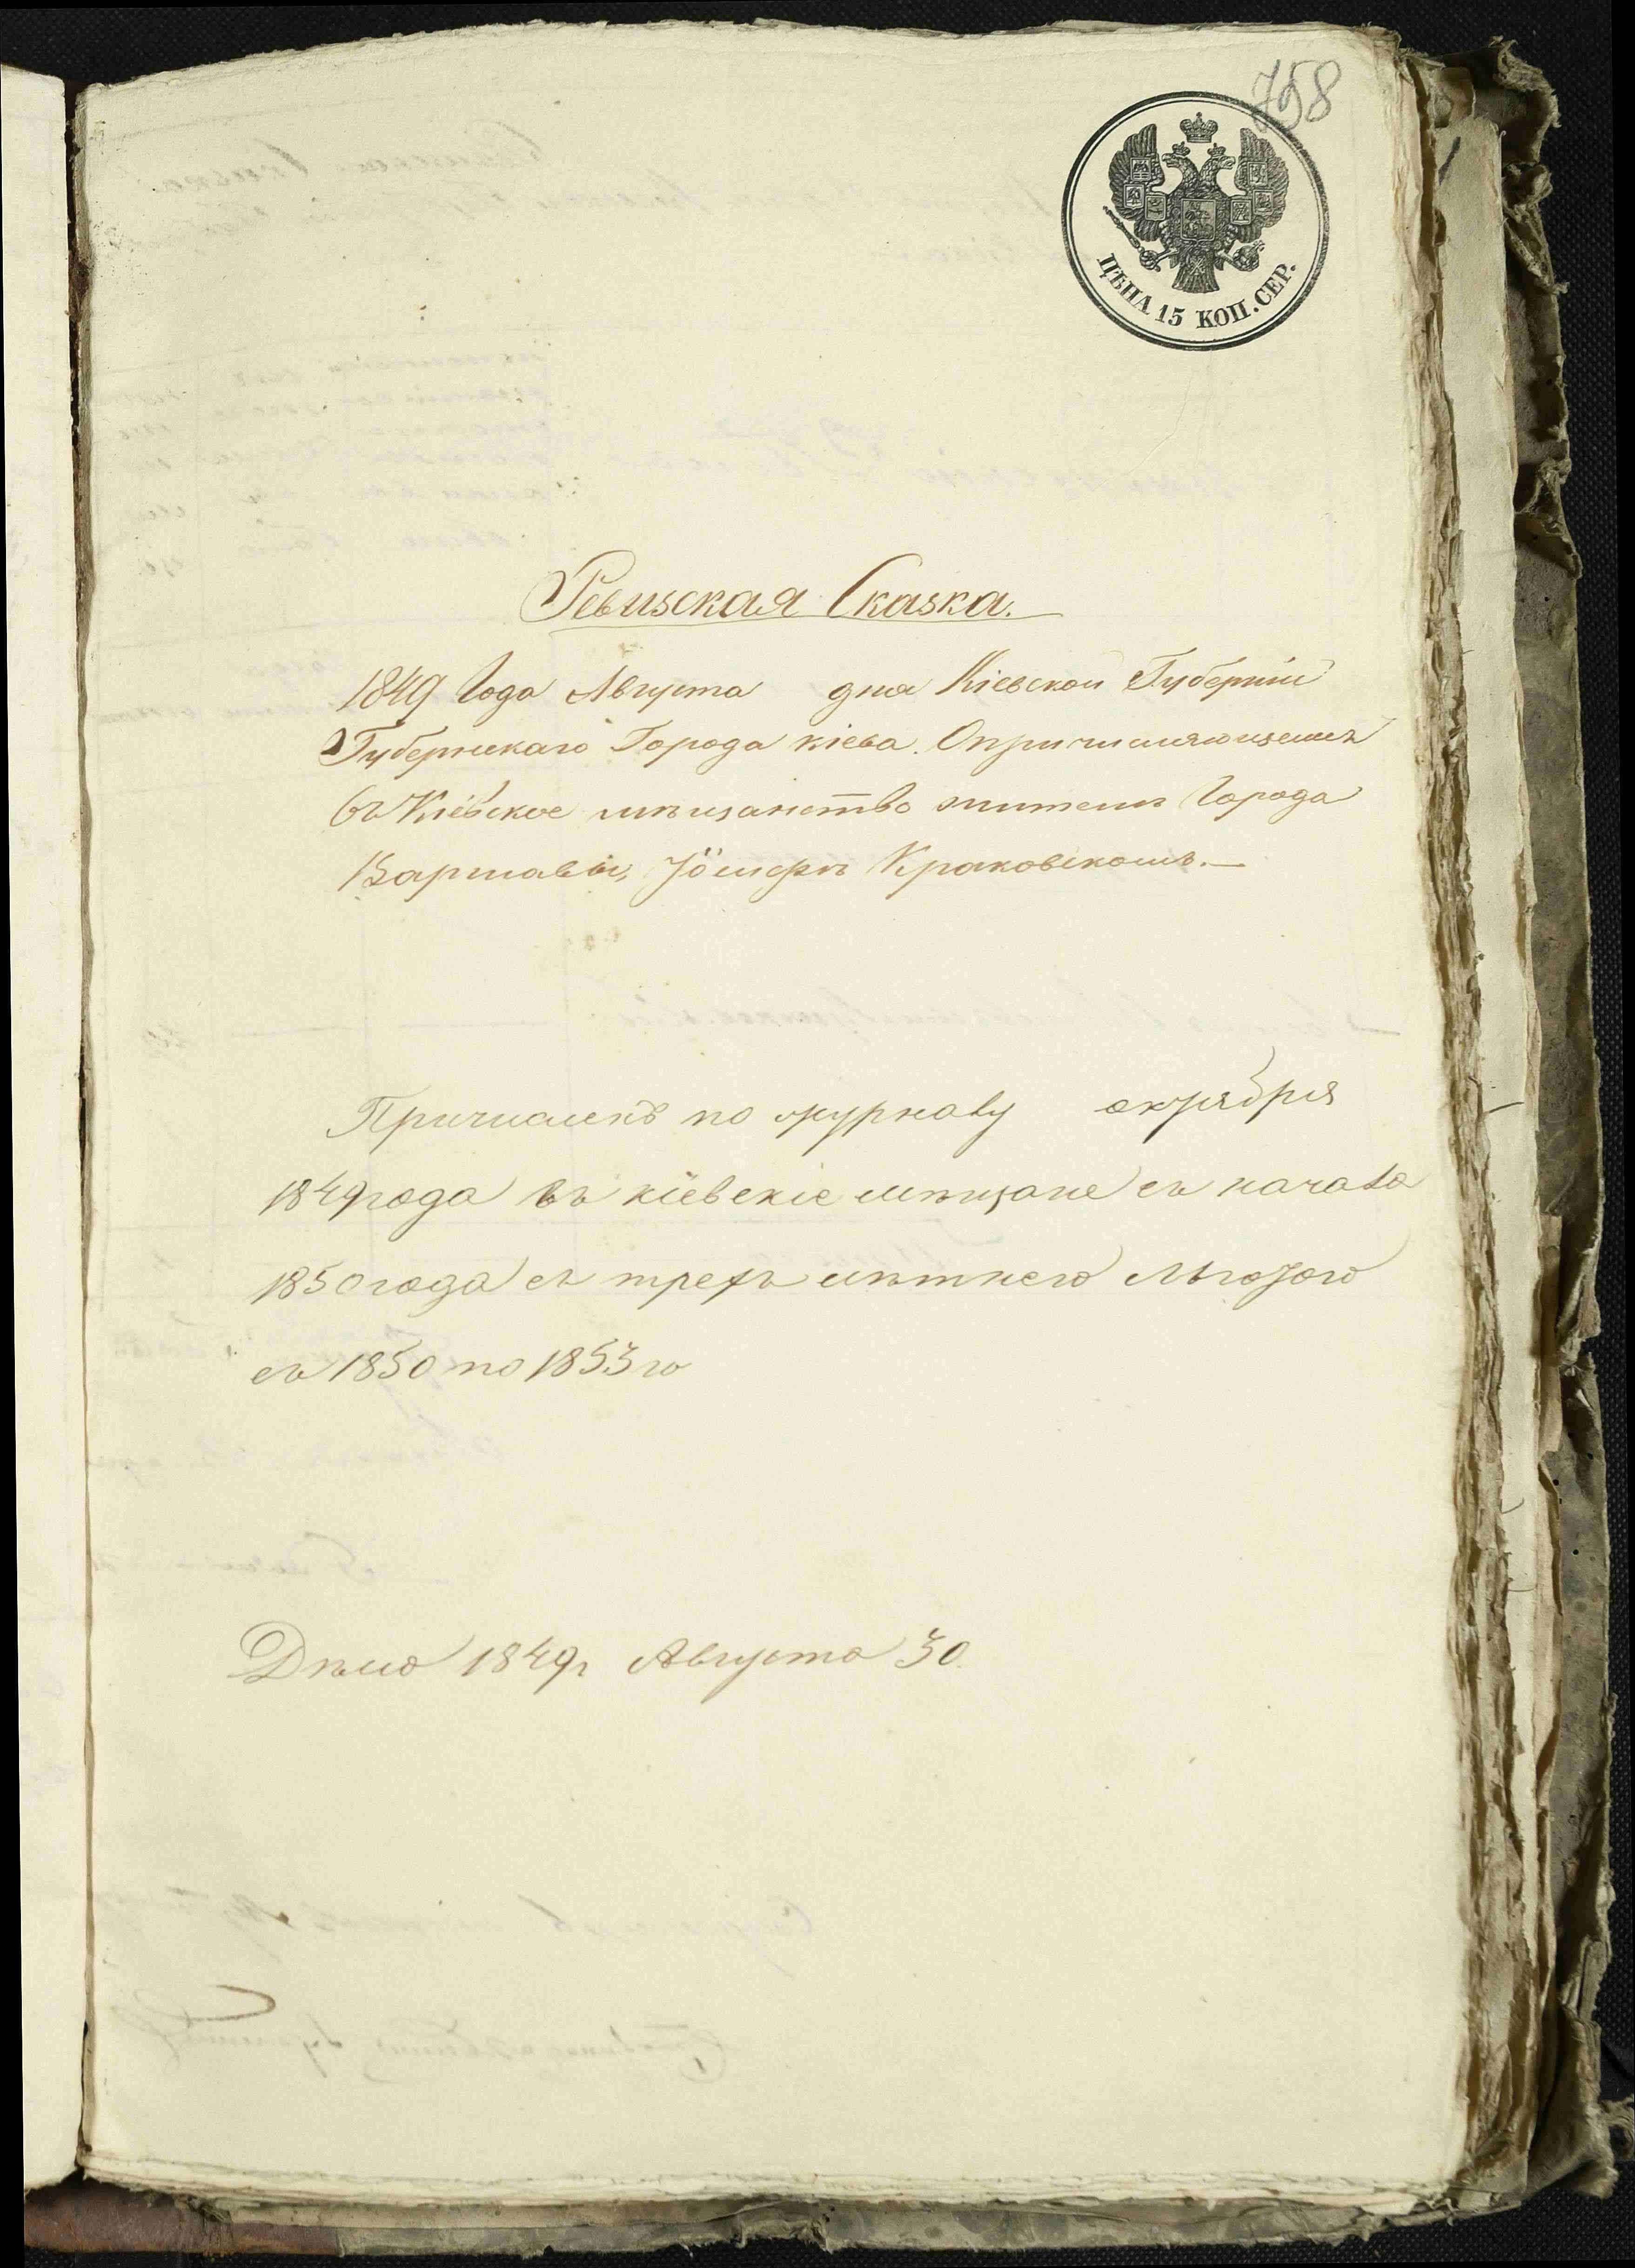 758
ЦѢНА 15 КОП. СЕР.
Ревизская Сказка.
1849 Года Августа дня Кіевской Губерніи
Губернскаго Города Кіева. О причисляющемся
въ Кіевское мѣщанство жителѣ Города
Варшавы, Іосифѣ Краковскомъ.—
Причисленъ по журналу октября
1849 года въ кіевскіе мѣщане съ начала
1850 года съ трехъ лѣтнею льготою
съ 1850 по 1853 го
Дѣло 1849 г Августа 30.